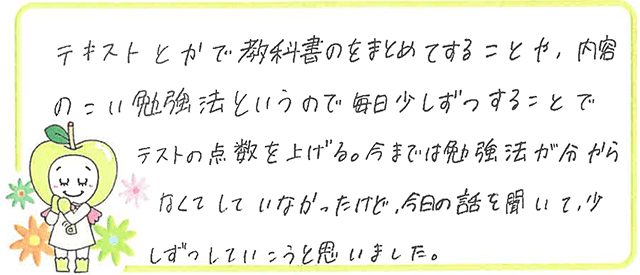 テキストとかで教科書のをまとめてすることや、内容
のこい勉強法というので毎日少しずつすることで
テストの点数を上げる。今までは勉強法が分から
なくてしていなかったけど、今日の話を聞いて、少
しずつしていこうと思いました。